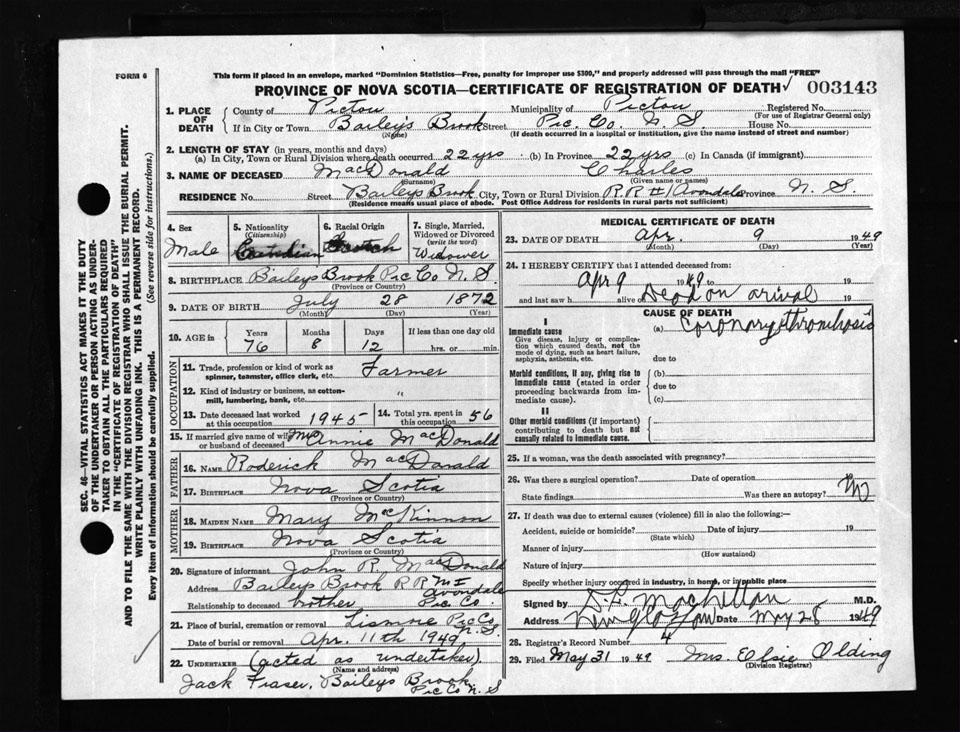 FORM 6
This form if placed in an envelope, marked "Dominion Statistics—Free, penalty for improper use $300," and properly addressed will pass through the mail "FREE"
PROVINCE OF NOVA SCOTIA—CERTIFICATE OF REGISTRATION OF DEATH 003143
1. PLACE OF DEATH County of Pictou Municipality of Pictou Registered No.
(For use of Registrar General only)
If in City or Town Bailey's Brook Street Pic. Co. N. S. House No.
(Name) (If death occurred in a hospital or institution, give the name instead of street and number)
2. LENGTH OF STAY (in years, months and days)
(a) In City, Town or Rural Division where death occurred 22 yrs (b) In Province 22 yrs (c) In Canada (if immigrant)
3. NAME OF DECEASED MacDonald Charles
(Surname) (Given name or names)
RESIDENCE No. Street Baileys Brook City, Town or Rural Division R.R #1 Avondale Province N. S.
(Residence means usual place of abode. Post Office Address for residents in rural parts not sufficient)
SEC. 46—VITAL STATISTICS ACT MAKES IT THE DUTY
OF THE UNDERTAKER OR PERSON ACTING AS UNDER-
TAKER TO OBTAIN ALL THE PARTICULARS REQUIRED
IN THE "CERTIFICATE OF REGISTRATION OF DEATH"
AND TO FILE THE SAME WITH THE DIVISION REGISTRAR WHO SHALL ISSUE THE BURIAL PERMIT.
WRITE PLAINLY WITH UNFADING INK. THIS IS A PERMANENT RECORD.
Every item of information should be carefully supplied. (See reverse side for instructions.)
4. Sex
Male
5. Nationality
(Citizenship)
Canadian
6. Racial Origin
Scotch
7. Single, Married,
Widowed or Divorced
(write the word)
Widower
8. BIRTHPLACE Baileys Brook Pic Co N. S
(Province or Country)
9. DATE OF BIRTH July 28 1872
(Month) (Day) (Year)
10. AGE in Years Months Days If less than one day old
76 8 12 hrs. or min.
OCCUPATION
11. Trade, profession or kind of work as
spinner, teamster, office clerk, etc. Farmer
12. Kind of industry or business, as cotton-
mill, lumbering, bank, etc. "
13. Date deceased last worked
at this occupation 1945
14. Total yrs. spent in
this occupation 56
15. If married give name of wife
or husband of deceased Minnie MacDonald
FATHER
16. NAME Roderick MacDonald
17. BIRTHPLACE Nova Scotia
(Province or Country)
MOTHER
18. MAIDEN NAME Mary MacKinnon
19. BIRTHPLACE Nova Scotia
(Province or Country)
20. Signature of informant John R. MacDonald
Address Baileys Brook R R No I Avondale
Relationship to deceased brother Pic Co.
21. Place of burial, cremation or removal Lismore Pic Co N. S.
Date of burial or removal Apr. 11th 1949
22. UNDERTAKER (acted as undertaker)
(Name and address)
Jack Fraser, Baileys Brook
Pic Co N. S
MEDICAL CERTIFICATE OF DEATH
23. DATE OF DEATH Apr. 9 1949
(Month) (Day) (Year)
24. I HEREBY CERTIFY that I attended deceased from:
Apr 9 1949 to 19
and last saw h alive on Dead on arival 19
CAUSE OF DEATH
I
Immediate cause (a) Coronary thrombosis
Give disease, injury or complica-
tion which caused death, not the
mode of dying, such as heart failure,
asphyxia, asthenia, etc. due to
Morbid conditions, if any, giving rise to (b)
immediate cause (stated in order due to
proceeding backwards from im-
mediate cause). (c)
II
Other morbid conditions (if important)
contributing to death but not
causally related to immediate cause.
25. If a woman, was the death associated with pregnancy?
26. Was there a surgical operation? Date of operation 19
State findings Was there an autopsy? No
27. If death was due to external causes (violence) fill in also the following:—
Accident, suicide or homicide? Date of injury 19
(State which)
Manner of injury
(How sustained)
Nature of injury
Specify whether injury occurred in industry, in home, or in public place
Signed by M.D.
Address New Glasgow Date May 28 1949
28. Registrar's Record Number 4
29. Filed May 31 1949 Mrs Elsie Olding
(Division Registrar)